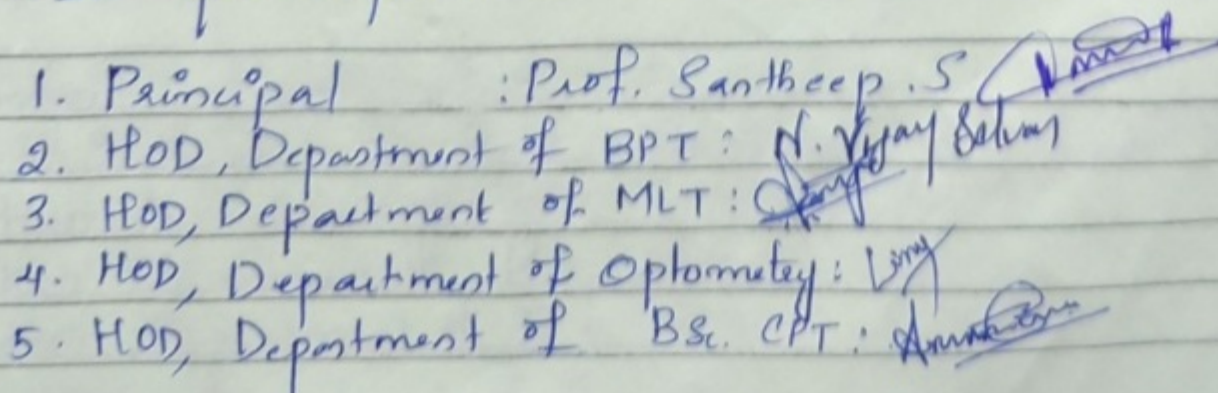 1. Principal : Prof. Santheep . S
2. HOD, Department of BPT : N. Vijay Selvan
3. HOD, Department of MLT :
4. HOD, Department of Optometry :
5. HOD, Department of BSc. CPT :